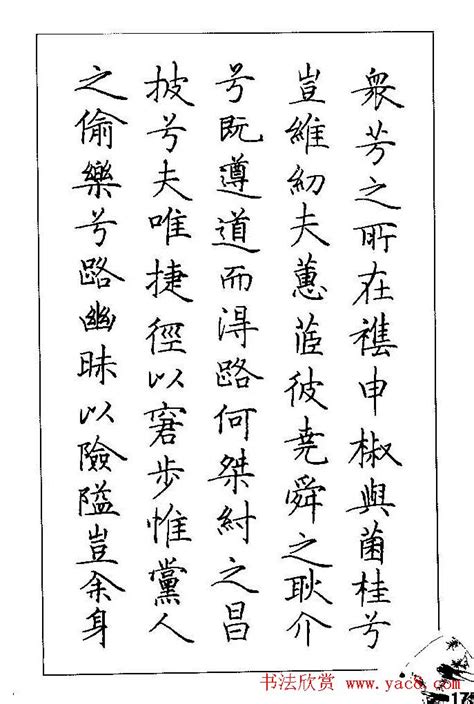 眾芳之所在襍申椒與菌桂兮
豈維紉夫蕙茝彼堯舜之耿介
兮既遵道而得路何桀紂之昌
披兮夫唯捷徑以窘步惟黨人
之偷樂兮路幽昧以險隘豈余身
书法欣赏 www.yac8.com
17